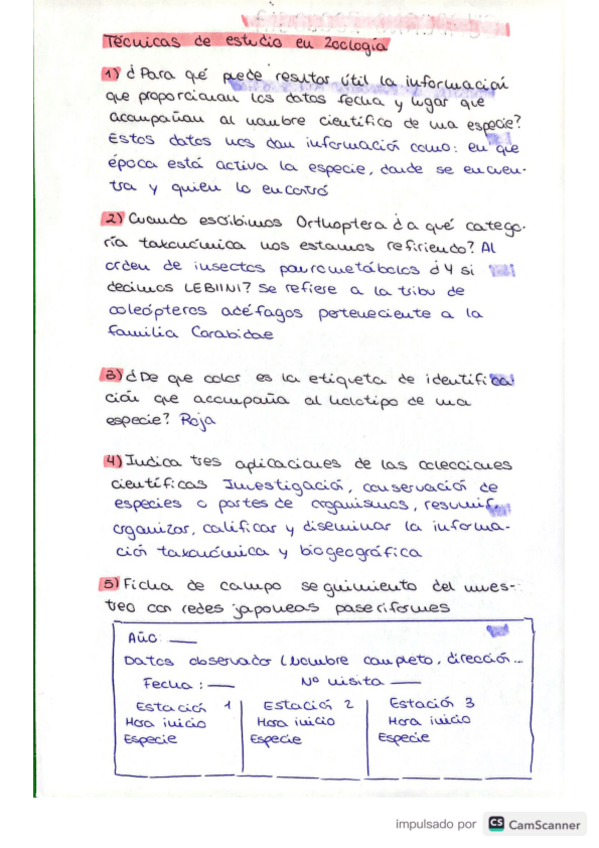 Técnicas de estudio en Zoología
1) ¿Para qué puede resultar útil la información
que proporcionan los datos fecha y lugar que
acompañan al nombre científico de una especie?
Estos datos nos dan información como: en que
época está activa la especie, donde se encuen-
tra y quien lo encontró
2) Cuando escribimos Orthoptera ¿a qué catego-
ría taxonómica nos estamos refiriendo? Al
orden de insectos paurometábolos ¿Y si
decimos LEBIINI? Se refiere a la tribu de
coleópteros adéfagos perteneciente a la
familia Carabidae
3) ¿De que color es la etiqueta de identifica
ción que acompaña al holotipo de una
especie? Roja
4) Indica tres aplicaciones de las colecciones
científicas Investigación, conservación de
especies o partes de organismos, resumir,
organizar, calificar y diseminar la informa-
ción taxonómica y biogeográfica
5) Ficha de campo seguimiento del mues-
treo con redes japonesas paseriformes
Año: __
Datos observador (Nombre completo, dirección...
Fecha: __ Nº visita __
Estación 1 Estación 2 Estación 3
Hora inicio Hora inicio Hora inicio
Especie Especie Especie
impulsado por CS CamScanner